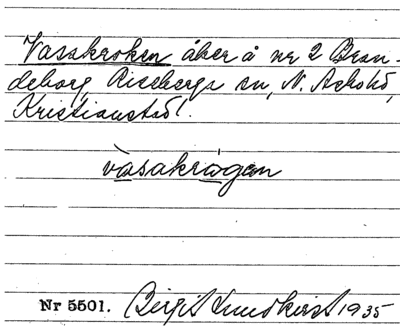 Vasskroken åker å nr 2 Bran-
deborg, Riseberga sn, N. Åsbohd,
Kristianstad l.
vàsakrågen
Nr 5501. Birgit Lundkvist 1935